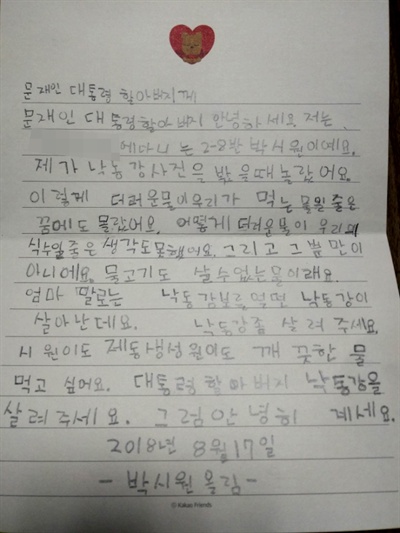 문재인 대통령 할아버지께
문재인 대통령할아버지 안녕하세요 저는
에다니는 2-8반 박시원이에요.
제가 낙동강사진을 봤을때놀랐어요.
이렇게 더러운물이우리가 먹는 물일줄은
꿈에도 몰랐어요. 어떻게더러운물이 우리의
식수일줄은 생각도못했어요. 그리고 그뿐만이
아니에요. 물고기도 살수없는물이래요.
엄마 말로는 낙동강보를열면 낙동강이
살아난데요. 낙동강좀 살려주세요.
시원이도 제동생성원이도 깨끗한 물
먹고 싶어요. 대통령할아버지 낙동강을
살려주세요. 그럼안녕히 계세요.
2018년 8월17일
-박시원올림-
© Kakao Friends